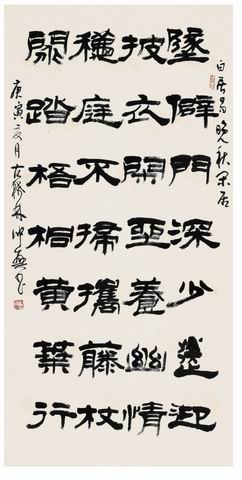 白居易晚秋閑居
墬僻門深少送迎
披衣閑坐養幽情
穐庭不掃攜藤杖
閑踏梧桐黃葉行
庚寅夏月古稀林仲興书